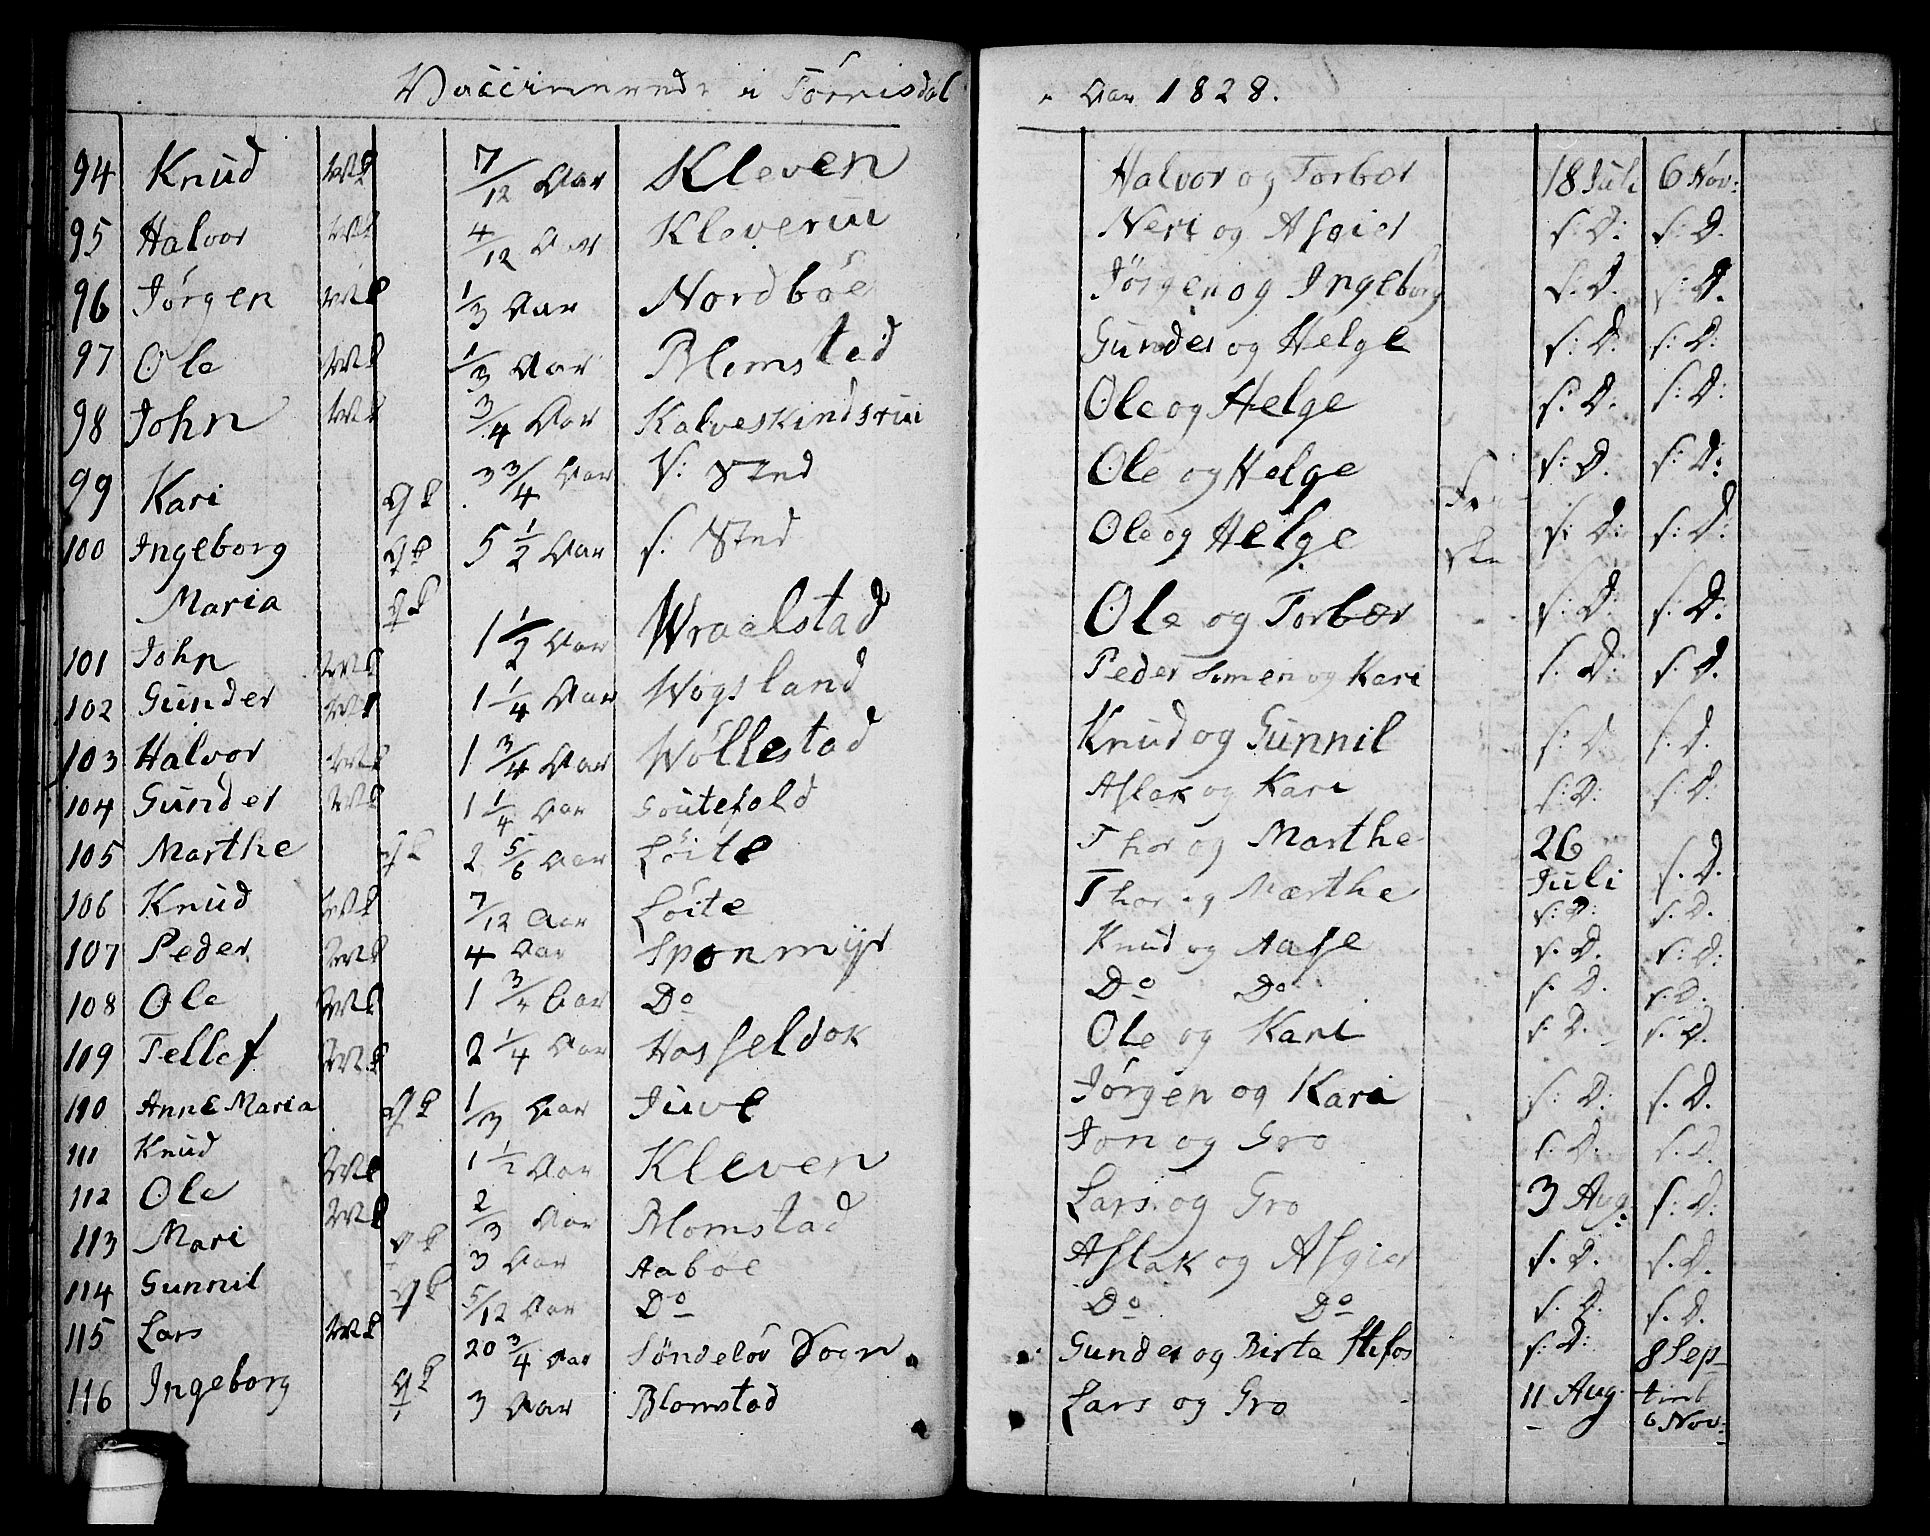 Vaccinerede i Torrisdal Aar 1828.
94 Knud Mk 7/12 Aar Kleven Halvor og Torbor 18 Juli 6 Nov:
95 Halvor Mk 4/12 Aar Kleveruu Neri og Asgier s: D: s: D.
96 Jörgen Mk 1/3 Aar Nordböe Jörgen og Ingeborg s. D. s: D.
97 Ole Mk 1/3 Aar Blomstad Gunder og Helge s: D. s: D:
98 John Mk 3/4 Aar Kalveskindsruu Ole og Helge s: D. s: D:
99 Kari Qk 3 3/4 Aar S: Sted Ole og Helge s: D. s: D:
100 Ingeborg Qk 5 1/2 Aar s: Sted Ole og Helge s: D: s: D:
Maria Qk 1 1/2 Aar Wraalstad Ole og Torbor s: D: s: D.
101 John Mk 1 1/4 Aar Wogsland Peder Simen og Kari s. D: s. D.
102 Gunder Mk 1 3/4 Aar Wöllestad Knud og Gunnil s: D s. D.
103 Halvor Mk 1 1/4 Aar Goutefald Aslak og Kari s: D: s: D:
104 Gunder Mk
105 Marthe Qk 2 5/6 Aar Löite Thor og Marthe 26 Juli s. D.
106 Knud Mk 7/12 Aar Löite Thor og Marthe s: D: s. D.
107 Peder Mk 4 Aar Sponmyr Knud og Aase s. D. s: D:
108 Ole Mk 1 3/4 Aar Do Do Do s. D. s. D.
109 Tellef Mk 2 1/4 Aar Hasseldok Ole og Kari s: D. s. D.
110 Anne Maria Qk 1/3 Aar Juve Jörgen og Kari s: D: s. D.
111 Knud Mk 1 1/2 Aar Kleven Jon og Gro s. D. s. D.
112 Ole Mk 2/3 Aar Blomstad Lars og Gro 3 Aug: s: D:
113 Mari Qk 3 Aar Aaböe Aslak og Asgier s. D. s. D.
114 Gunnil Qk 5/12 Aar Do Do Do s. D. s. D.
115 Lars Mk 20 3/4 Aar Söndelöv Gunder og Birta s. D: 8 Sep-
temb
116 Ingeborg Qk 3 Aar Blomstad Lars og Gro 11 Aug. 6 Nov: